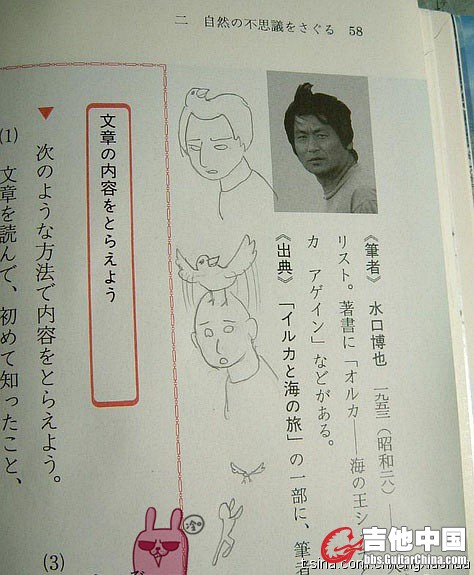 二 自然の不思議をさぐる 58
《筆者》 水口博也 一九五三(昭和二八)—
リスト。著書に「オルカ——海の王シ
カ アゲイン」などがある。
《出典》 「イルカと海の旅」の一部に、筆者
文章の内容をとらえよう
▼ 次のような方法で内容をとらえよう。
(1) 文章を読んで、初めて知ったこと、
(3)
冷
吉他中国
bbs.GuitarChina.com